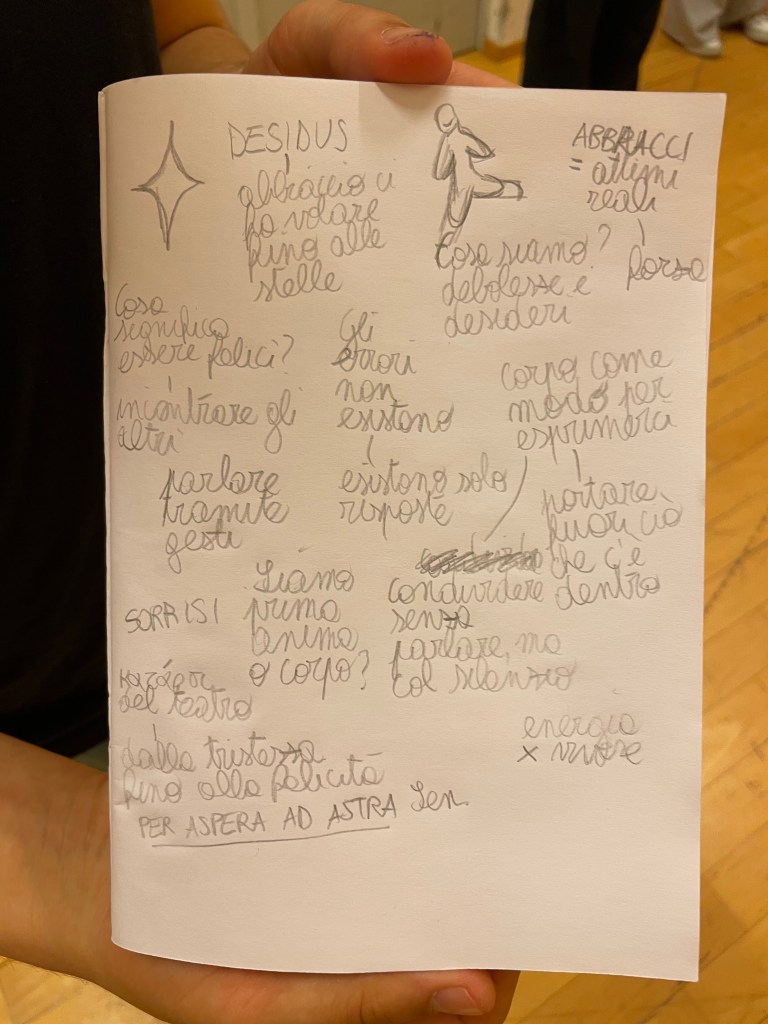 DESIDUS
abbraccio ci
fa volare
fino alle
stelle
ABBRACCI
= attimi
reali
forza
Cosa siamo?
debolezze e
desideri
Cosa
significa
essere felici?
incontrare gli
altri
Gli
errori
non
esistono
esistono solo
risposte
corpo come
modo per
esprimerci
portare
fuori ciò
che c'è
dentro
parlare
tramite
gesti
condividere
senza
parlare, ma
col silenzio
SORRISI
Siamo
prima
anima
o corpo?
del teatro
dalla tristezza
fino alla felicità
PER ASPERA AD ASTRA Sen.
energia
x